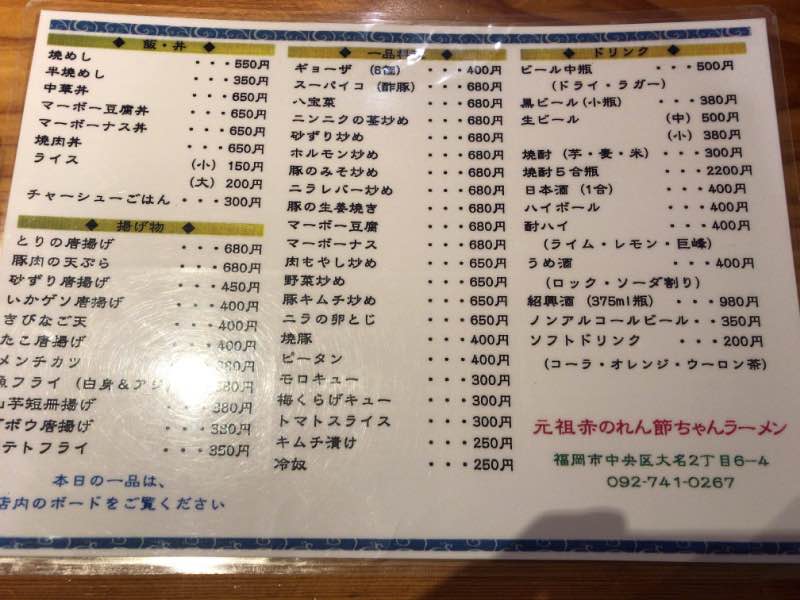 ◆ 飯・丼 ◆
焼めし ・・・550円
半焼めし ・・・350円
中華丼 ・・・650円
マーボー豆腐丼 ・・・650円
マーボーナス丼 ・・・650円
焼肉丼 ・・・650円
ライス (小) 150円
(大) 200円
チャーシューごはん ・・・300円
◆ 揚げ物 ◆
とりの唐揚げ ・・・680円
豚肉の天ぷら ・・・680円
砂ずり唐揚げ ・・・450円
いかゲソ唐揚げ ・・・400円
きびなご天 ・・・400円
たこ唐揚げ ・・・400円
メンチカツ
フライ (白身&アジ
山芋短冊揚げ ・・・380円
ボウ唐揚げ ・・・380円
テトフライ ・・・350円
本日の一品は、
店内のボードをご覧ください
◆ 一品料理 ◆
ギョーザ (8個) ・・・400円
スーパイコ (酢豚) ・・・680円
八宝菜 ・・・680円
ニンニクの茎炒め ・・・680円
砂ずり炒め ・・・680円
ホルモン炒め ・・・680円
豚のみそ炒め ・・・680円
ニラレバー炒め ・・・680円
豚の生姜焼き ・・・680円
マーボー豆腐 ・・・680円
マーボーナス ・・・680円
肉もやし炒め ・・・650円
野菜炒め ・・・650円
豚キムチ炒め ・・・650円
ニラの卵とじ ・・・650円
焼豚 ・・・400円
ピータン ・・・400円
モロキュー ・・・300円
梅くらげキュー ・・・300円
トマトスライス ・・・300円
キムチ漬け ・・・250円
冷奴 ・・・250円
◆ ドリンク ◆
ビール中瓶 ・・・500円
(ドライ・ラガー)
黒ビール(小瓶) ・・・380円
生ビール (中) 500円
(小) 380円
焼酎 (芋・麦・米) ・・・300円
焼酎5合瓶 ・・・2200円
日本酒 (1合) ・・・400円
ハイボール ・・・400円
酎ハイ ・・・400円
(ライム・レモン・巨峰)
うめ酒 ・・・400円
(ロック・ソーダ割り)
紹興酒 (375ml瓶) ・・・980円
ノンアルコールビール・・・350円
ソフトドリンク ・・・200円
(コーラ・オレンジ・ウーロン茶)
元祖赤のれん節ちゃんラーメン
福岡市中央区大名2丁目6-4
092-741-0267